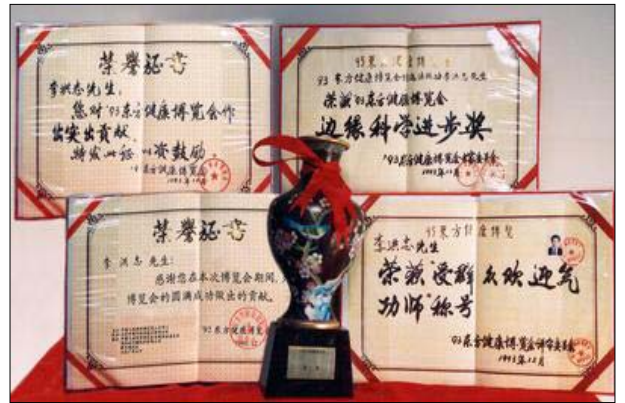 荣誉证书
李洪志先生:
您对'93东方健康博览会作
出突出贡献,
特发此证 以资鼓励。
'93东方健康博览会
1993年12月
'93东方健康博览会
荣获'93东方健康博览会
边缘科学进步奖
'93东方健康博览会评审委员会
1993年12月
荣誉证书
李洪志先生:
感谢您在本次博览会期间,
博览会的圆满成功做出的贡献。
'93东方健康博览
'93东方健康博览
李洪志先生
荣获“受群众欢迎气
功师”称号
'93东方健康博览会评审委员会
1993年12月